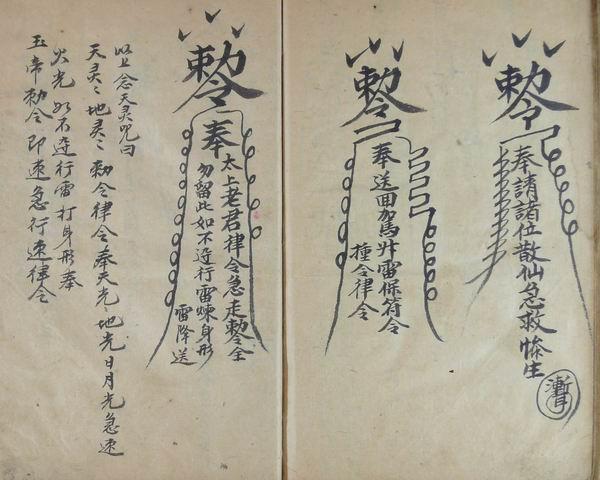 勅令
奉請諸位散仙急救
勅令
奉送回加馬廾雷保符令
令律令
勅令
奉
太上老君律令急走勅令
勿留此如不遵行雷煉身形
雷降送
以上念天灵咒曰
天灵〻地灵〻勅令律令奉天光〻地光日月光急速
火光如不遵行雷打身形奉
玉帝勅令即速急行速律令